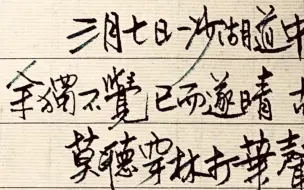 三月七日沙湖道中
余獨不覺 已而遂晴 古
莫聽穿林打葉聲